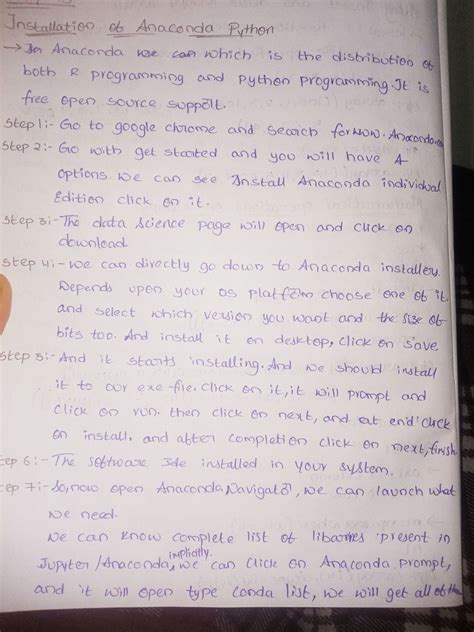 Installation of Anaconda Python
→ In Anaconda we can which is the distribution of
both R programming and python programming. It is
free open source support.
Step 1:- Go to google chrome and search for www. Anaconda.
Step 2:- Go with get started and you will have 4
options. We can see Install Anaconda individual
Edition click on it.
Step 3:- The data science page will open and click on
download.
Step 4:- we can directly go down to Anaconda installers.
Depends upon your os platform choose one of it
and select which version you want and the size of
bits too. And install it on desktop, click on save
Step 5:- And it starts installing. And we should install
it to our exe-file. click on it, it will prompt and
click on run. then click on next, and at end click
on install. and after completion click on next, finish
ep 6:- The software Ide installed in your system.
ep 7:- So, now open Anaconda Navigator, we can launch what
we need.
We can know complete list of libarries present in
implicitly.
Jupyter /Anaconda, we can click on Anaconda prompt,
and it will open type conda list, we will get all of the